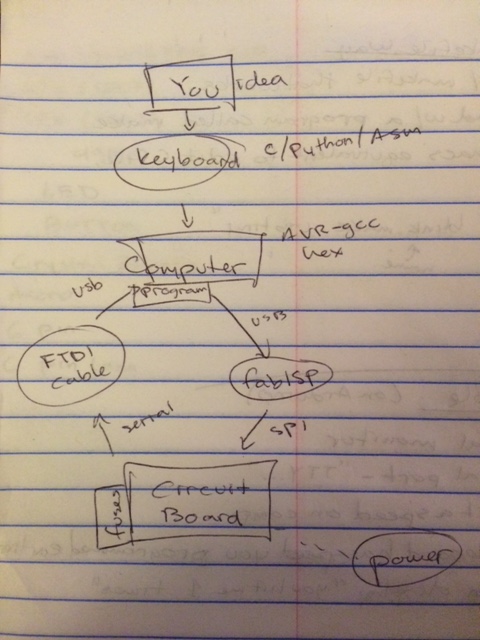 You idea
keyboard C/Python/Asm
Computer AVR-gcc
hex
program
usb
USB
FTDI
Cable
fabISP
serial
SPI
Circuit
Board
fuses
power